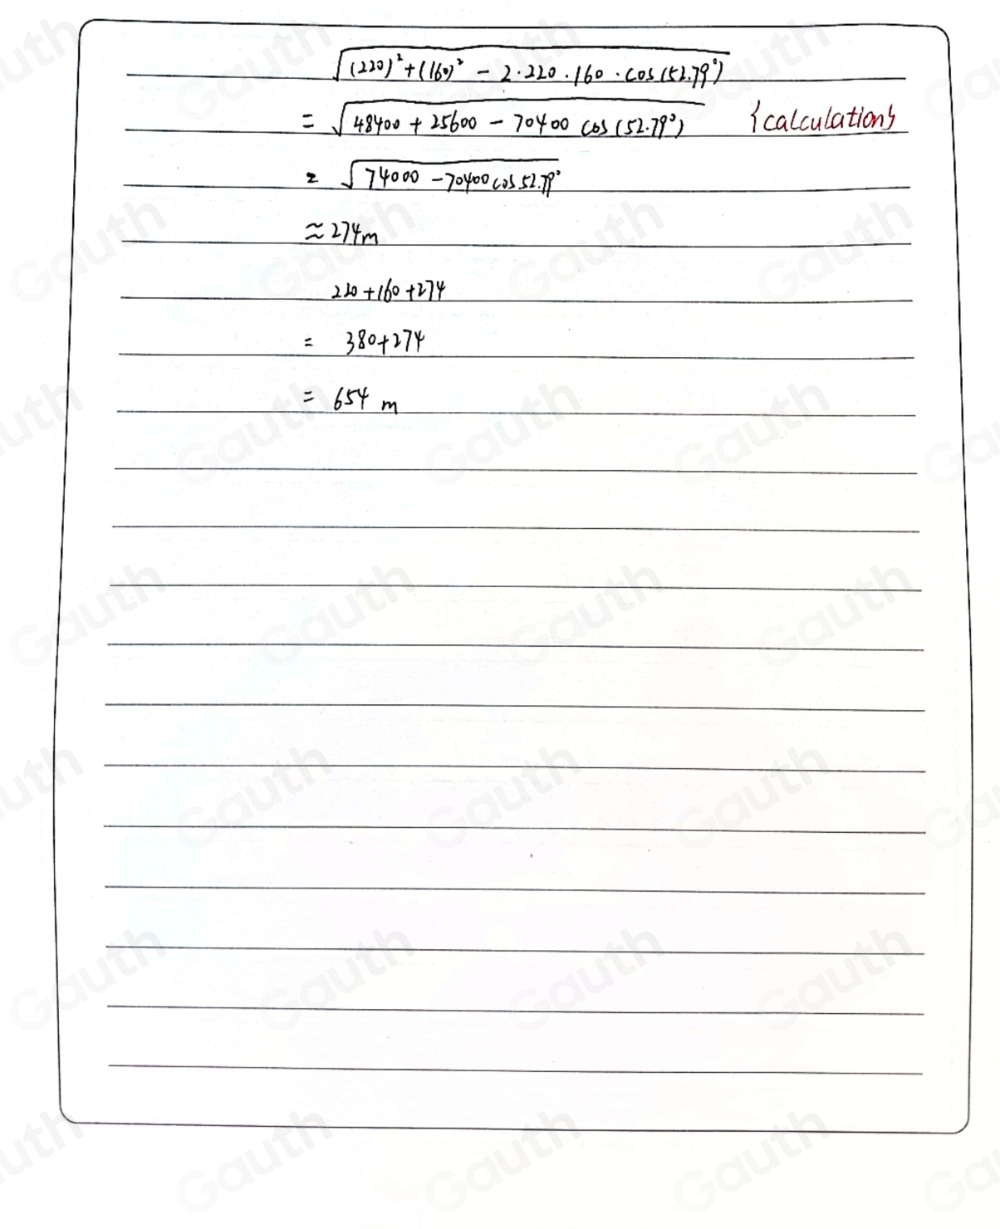 √(220)² + (160)² - 2·220·160·cos(52.79°)
= √48400 + 25600 - 70400 cos(52.79°) {calculation}
= √74000 - 70400 cos 52.79°
≈ 274m
220+160+274
= 380+274
= 654 m